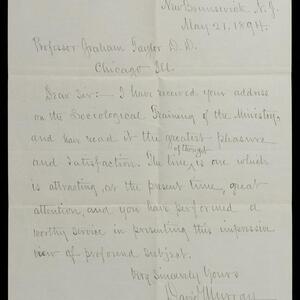 New Brunswick, N.J.
May 21, 1894.
Professor Graham Taylor D.D.
Chicago Ill.
Dear Sir:- I have received your address
on the Sociological Training of the Ministry,
and have read it the greatest pleasure
and satisfaction. The line of thought is one which
is attracting, at the present time, great
attention, and you have performed a
worthy service in presenting this impressive
view of profound subject.
Very Sincerely Yours
David Murray